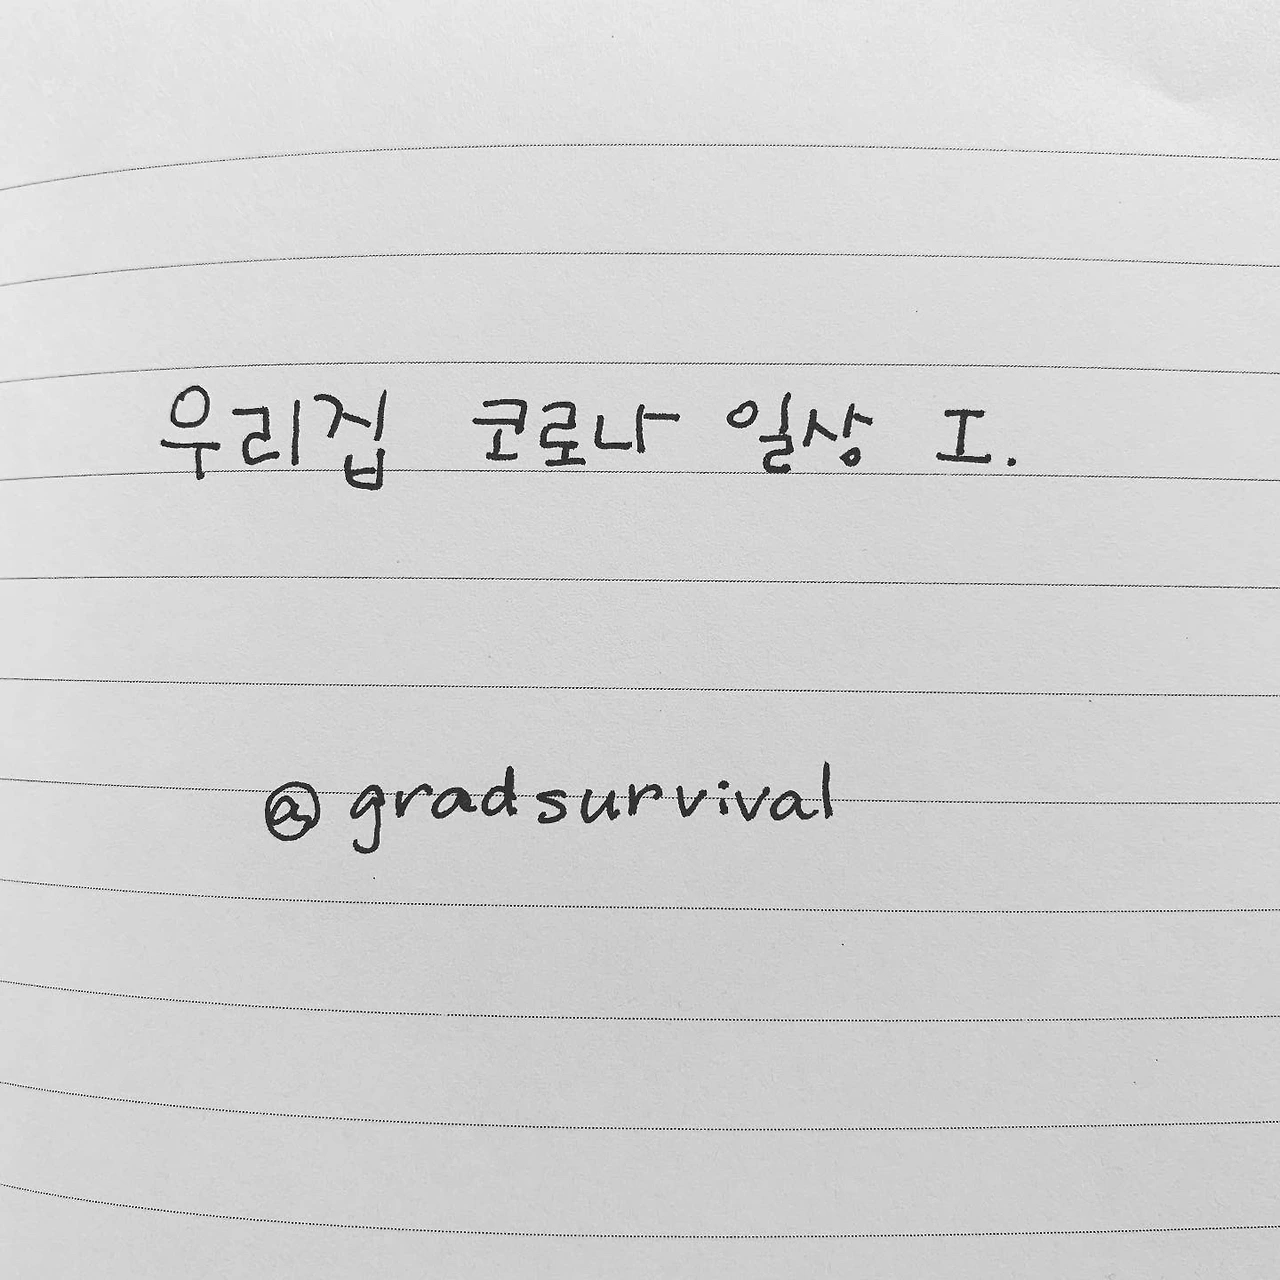 우리집 코로나 일상 I.
@gradsurvival